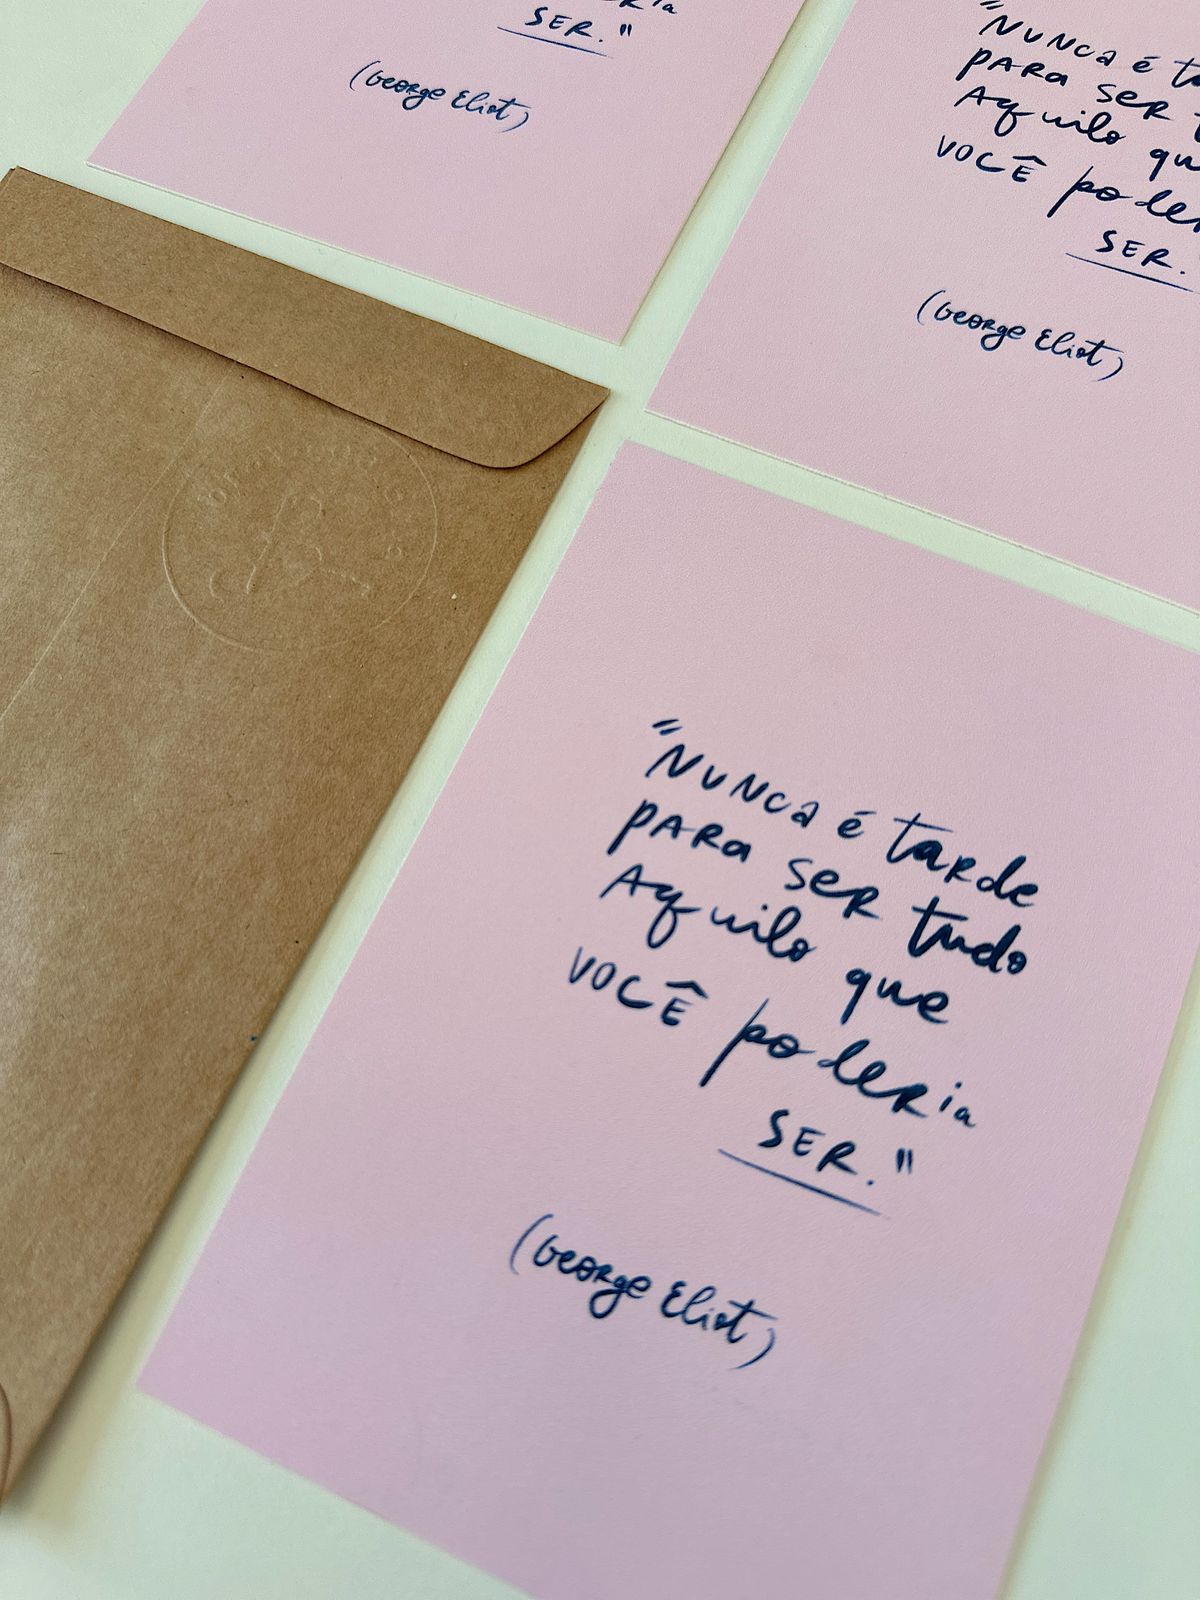 SER."
(George Eliot)
"NUNca é
PARa SER
Aquilo
VOCÊ poder
SER.
(George Eliot)
"NUNca é tarde
PARa SER tudo
Aquilo que
VOCÊ poderia
SER."
(George Eliot)